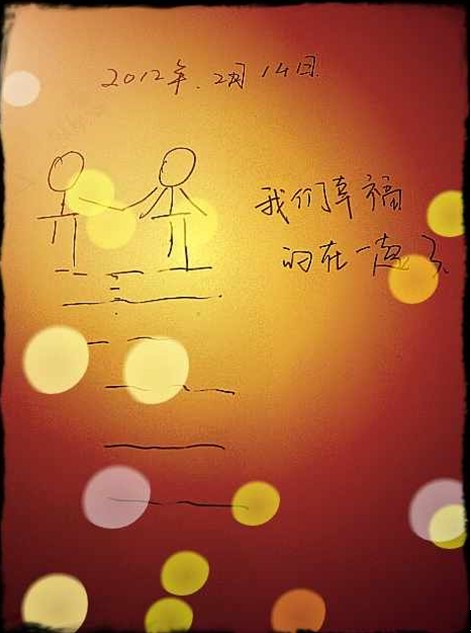 2012年.2月14日.
我们幸福
的在一起了